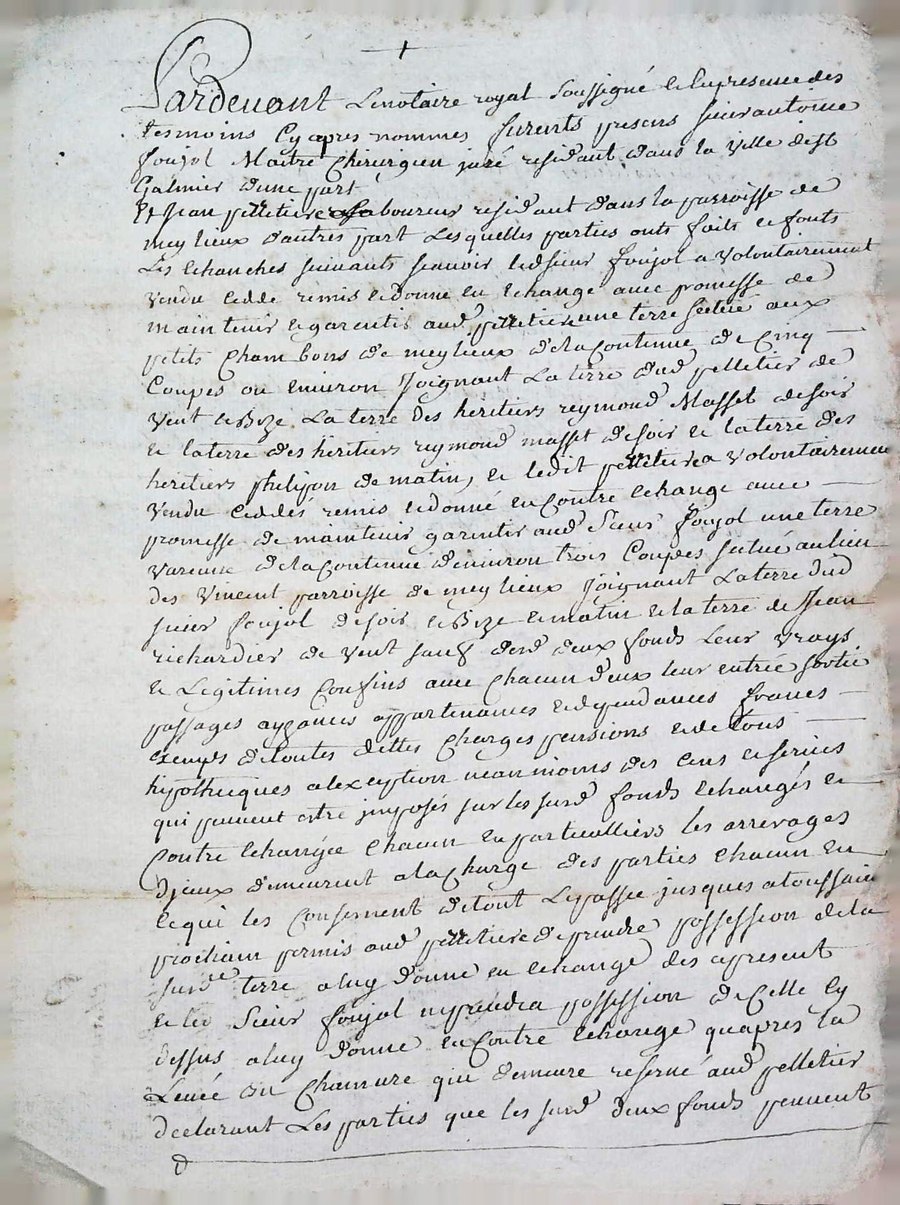 +
Pardevant Lenotaire royal Soussigné et En presence des
tesmoins Cy apres nommes furents presens sieur antoine
foujol Maitre Chirurgien juré residant dans la ville de st
Galmier dune part
Et Jean pelletier Laboureur residant dans la parroisse de
meylieux dautres part Lesquelles parties onts faits et fonts
Les Echanches suivants scavoir led sieur foujol a volontairement
vendu cedde remis et donné en Echange avec promesse de
maintenir et garentir aud pelletier une terre scitué aux
petits Chambons de meylieux de la Continue de Cinq
Coupes ou Environ Joignant La terre dud pelletier de
vent et Bize La terre des heritiers reymond Masset de soir
et la terre des heritiers reymond masset de soir et la terre des
heritiers philipon de matin, et ledit pelletier a volontairement
vendu Ceddés remis et donné en Contre Echange avec
promesse de maintenir garentir aud Sieur foujol une terre
varenne de la Continue denviron trois Coupes scitué au lieu
des vincent parroisse de meylieux Joignant La terre dud
sieur foujol de soir et Bize et matin et la terre de Jean
richardier de vent sauf desd deux fonds Leur vrays
et Legitimes Confins avec Chacun deux leur entrée sortie
passages ayzances appartenances et dependances francs
exemps de toutes dettes Charges pensions et de tous
hipothecques a lexception neanmoins des Cens et servies
qui peuvent estre imposés sur les susd fonds Echangés et
Contre Echangée Chacun En particulliers les arrerages
diceux demeurent a la Charge des parties Chacun En
ce qui les Consernent de tout Le passée jusques a toussaint
prochain permis aud pelletier de prendre possession de la
susde terre a luy donné en Echange des apresent
et led Sieur foujol possession de Celle Cy
dessus a luy donné en Contre Echange quapres la
Levée du qui demeure reservé aud pelletier
declarant Les parties que les susd deux fonds peuvent